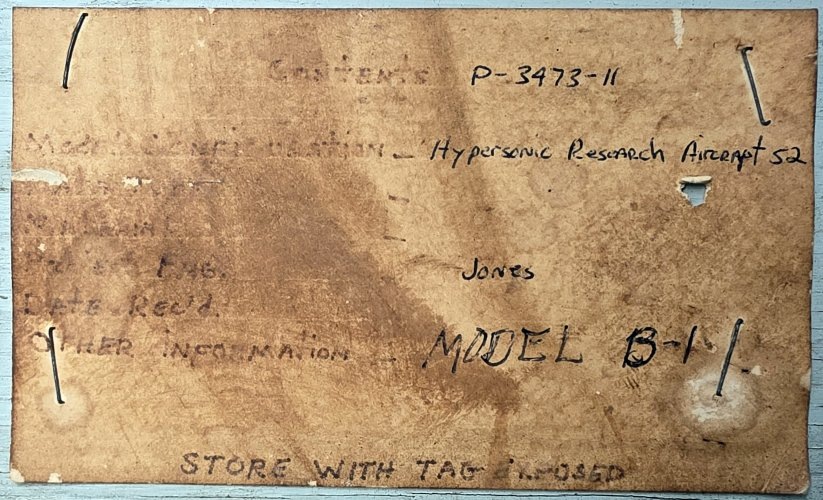 CONTENTS P-3473-11
Model Configuration - Hypersonic Research Aircraft 52
-
-
Project Eng. Jones
Date Rec'd.
Other Information - MODEL B-1
STORE WITH TAG EXPOSED